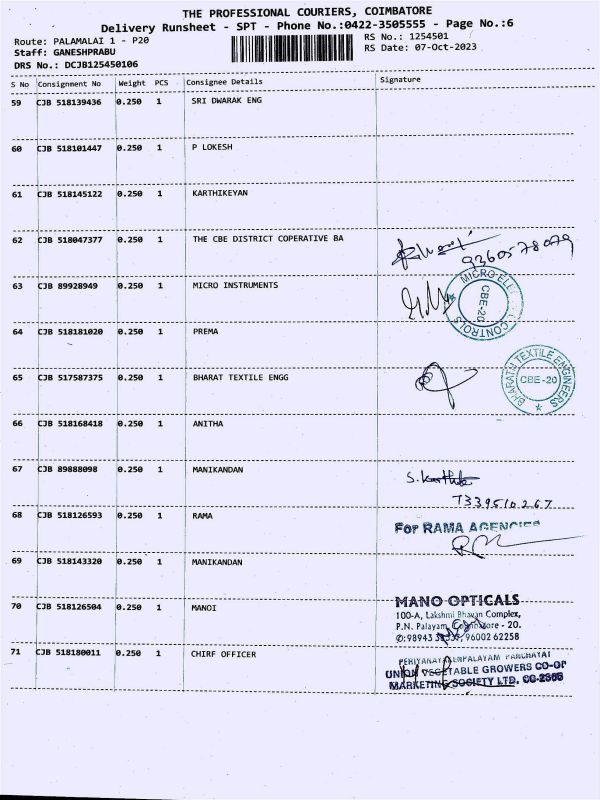 THE PROFESSIONAL COURIERS, COIMBATORE
Delivery Runsheet - SPT - Phone No.:0422-3505555 - Page No.:6
Route: PALAMALAI 1 - P20
RS No.: 1254501
Staff: GANESHPRABU
RS Date: 07-Oct-2023
DRS No.: DCJB125450106
S No Consignment No Weight PCS Consignee Details Signature
59 CJB 518139436 0.250 1 SRI DWARAK ENG
60 CJB 518101447 0.250 1 P LOKESH
61 CJB 518145122 0.250 1 KARTHIKEYAN
62 CJB 518047377 0.250 1 THE CBE DISTRICT COPERATIVE BA
9360578079
63 CJB 89928949 0.250 1 MICRO INSTRUMENTS
MICRO CONTROLS CBE-20
64 CJB 518181020 0.250 1 PREMA
65 CJB 517587375 0.250 1 BHARAT TEXTILE ENGG
BHARATH TEXTILE ENGINEERS CBE-20
66 CJB 518168418 0.250 1 ANITHA
67 CJB 89888098 0.250 1 MANIKANDAN
7339510267
68 CJB 518126593 0.250 1 RAMA
For RAMA AGENCIES
69 CJB 518143320 0.250 1 MANIKANDAN
70 CJB 518126504 0.250 1 MANOI
MANO OPTICALS
100-A, Lakshmi Bhavan Complex,
P.N. Palayam, Coimbatore - 20.
96002 62258
71 CJB 518180011 0.250 1 CHIRF OFFICER
UNION VEGETABLE GROWERS CO-OP
MARKETING SOCIETY LTD.